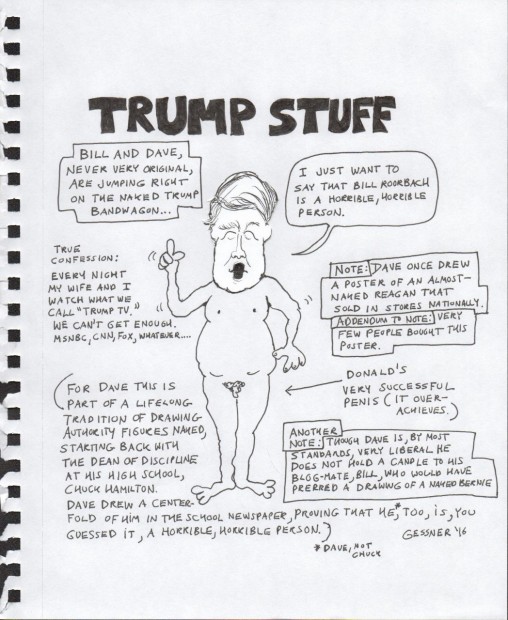 TRUMP STUFF
BILL AND DAVE,
NEVER VERY ORIGINAL,
ARE JUMPING RIGHT
ON THE NAKED TRUMP
BANDWAGON...
I JUST WANT TO
SAY THAT BILL ROORBACH
IS A HORRIBLE, HORRIBLE
PERSON.
TRUE
CONFESSION:
EVERY NIGHT
MY WIFE AND I
WATCH WHAT WE
CALL "TRUMP TV."
WE CAN'T GET ENOUGH.
MSNBC, CNN, FOX, WHATEVER....
NOTE: DAVE ONCE DREW
A POSTER OF AN ALMOST-
NAKED REAGAN THAT
SOLD IN STORES NATIONALLY.
ADDENDUM TO NOTE: VERY
FEW PEOPLE BOUGHT THIS
POSTER.
DONALD'S
VERY SUCCESSFUL
PENIS (IT OVER-
ACHIEVES.)
(FOR DAVE THIS IS
PART OF A LIFELONG
TRADITION OF DRAWING
AUTHORITY FIGURES NAKED,
STARTING BACK WITH
THE DEAN OF DISCIPLINE
AT HIS HIGH SCHOOL,
CHUCK HAMILTON.
DAVE DREW A CENTER-
FOLD OF HIM IN THE SCHOOL NEWSPAPER, PROVING THAT HE,* TOO, IS, YOU
GUESSED IT, A HORRIBLE, HORRIBLE PERSON.)
*DAVE, NOT
CHUCK
ANOTHER
NOTE: THOUGH DAVE IS, BY MOST
STANDARDS, VERY LIBERAL HE
DOES NOT HOLD A CANDLE TO HIS
BLOG-MATE, BILL, WHO WOULD HAVE
PRERRED A DRAWING OF A NAKED BERNIE
GESSNER '16